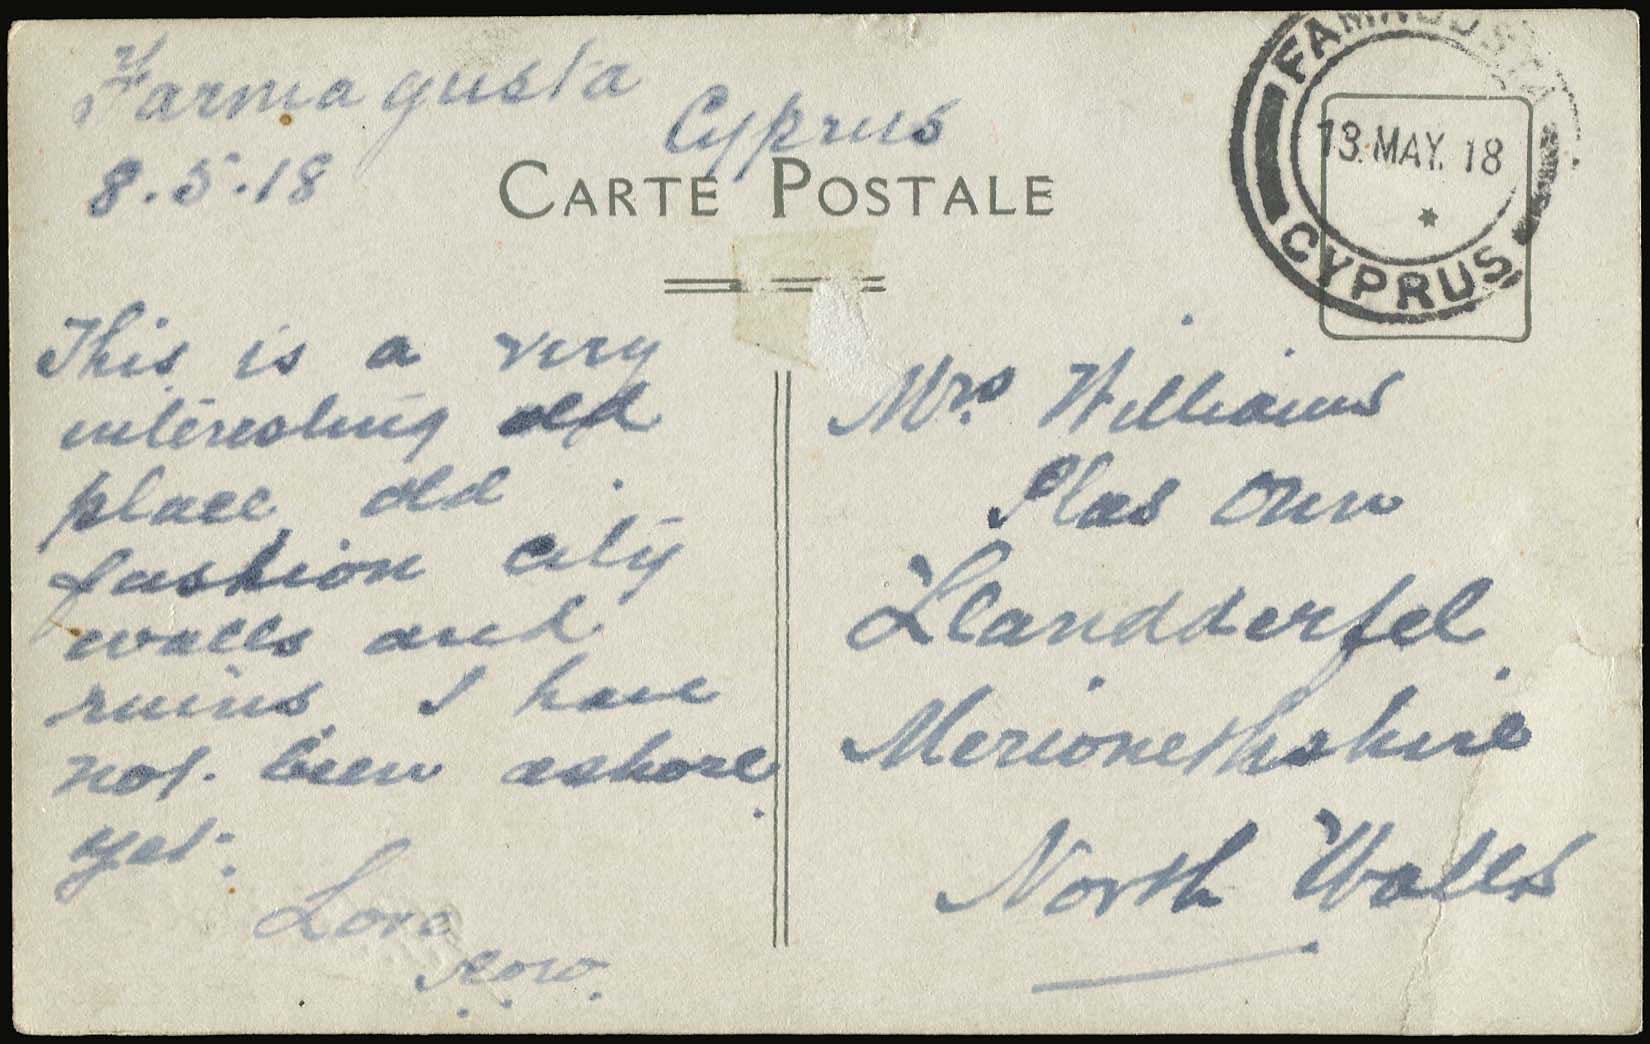 Farmagusta
Cyprus
8.5.18
CARTE POSTALE
FAMAGUSTA
13.MAY.18
*
CYPRUS
This is a very
interesting old
place, old
fashion city
walls and
ruins, I have
not been ashore
yet.
Love
Mrs Williams
Plas
Llandderfel
Merionethshire
North Walls